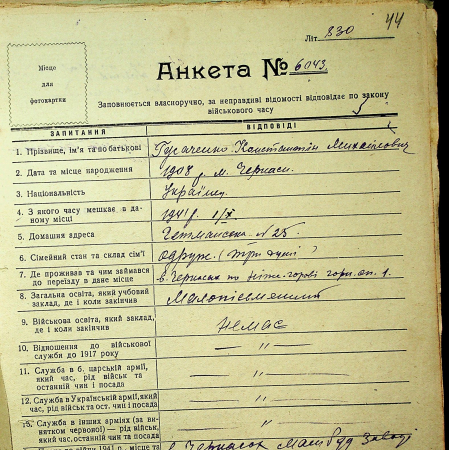 44
Літ. 830
Місце
для
фотокартки
Анкета № 6043
Заповнюється власноручно, за неправдиві відомості відповідає по закону
військового часу
ЗАПИТАННЯ ВІДПОВІДІ
1. Прізвище, ім'я та по батькові Гусаченко Константін Михайлович
2. Дата та місце народження 1908 р. м. Черкаси.
3. Національність Українец
4. З якого часу мешкає в да-
ному місці 1941 р.
5. Домашня адреса Гетманська № 25.
6. Сімейний стан та склад сім'ї одруж. (три душі)
7. Де проживав та чим займався
до переїзду в дане місце в Черкасах по
8. Загальна освіта, який учбовий
заклад, де і коли закінчив Малописьменний
9. Військова освіта, який заклад,
де і коли закінчив немає
10. Відношення до військової
служби до 1917 року — " —
11. Служба в б. царській армії,
який час, рід військ та
останній чин і посада — " —
12. Служба в Українській армії, який
час, рід військ та ост. чин і посада — " —
15. Служба в інших арміях (за ви-
нятком червоної) — рід військ,
який час, останній чин та посада — " —
в Черкасах Машбуд Заводі